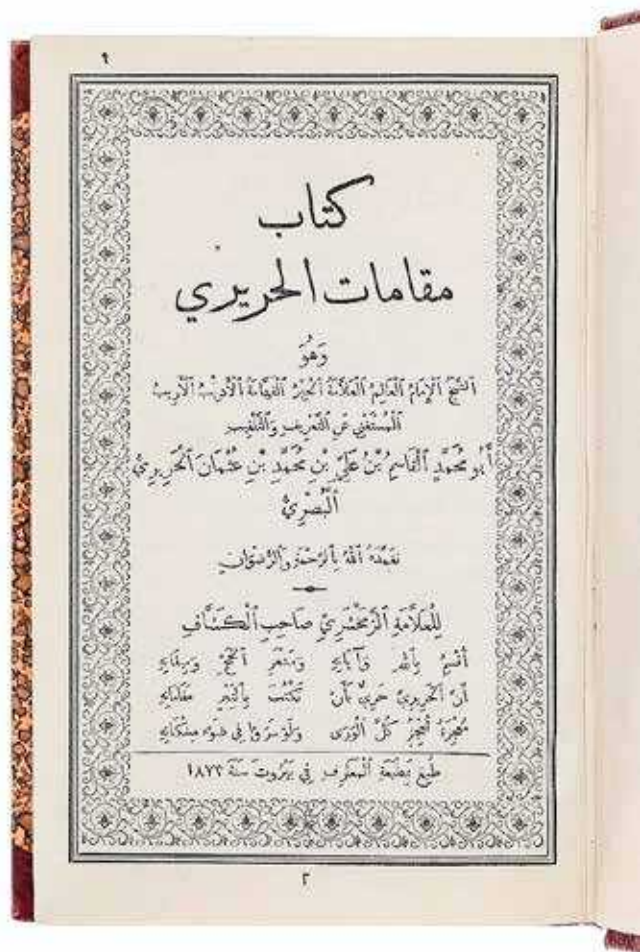 ٩
كتاب
مقامات الحريري
وَهُوَ
الشَّيْخُ الْإِمَامُ الْعَالِمُ الْعَلَّامَةُ الْحَبْرُ الْفَهَّامَةُ الْأَدِيبُ الْأَرِيبُ
الْمُسْتَغْنِي عَنِ التَّعْرِيفِ وَالتَّلْقِيبِ
أَبُو مُحَمَّدٍ الْقَاسِمُ بْنُ عَلِيِّ بْنِ مُحَمَّدِ بْنِ عُثْمَانَ الْحَرِيرِيُّ
الْبَصْرِيُّ
تَغَمَّدَهُ اللهُ بِالرَّحْمَةِ وَالرِّضْوَانِ
لِلْعَلَّامَةِ الزَّمَخْشَرِيِّ صَاحِبِ الْكَشَّافِ
أُقْسِمُ بِاللهِ وَآيَاتِهِ وَمَشْعَرِ الْحَجِّ وَمِيقَاتِهِ
أَنَّ الْحَرِيرِيَّ حَرِيٌّ بِأَنْ تُكْتَبَ بِالتِّبْرِ مَقَامَاتُهُ
مُعْجِزَةٌ تُعْجِزُ كُلَّ الْوَرَى وَلَوْ سَرَوْا فِي ضَوْءِ مِشْكَاتِهِ
طُبِعَ بِمَطْبَعَةِ الْمَعَارِفِ فِي بَيْرُوتَ سَنَةَ ١٨٧٣
٢